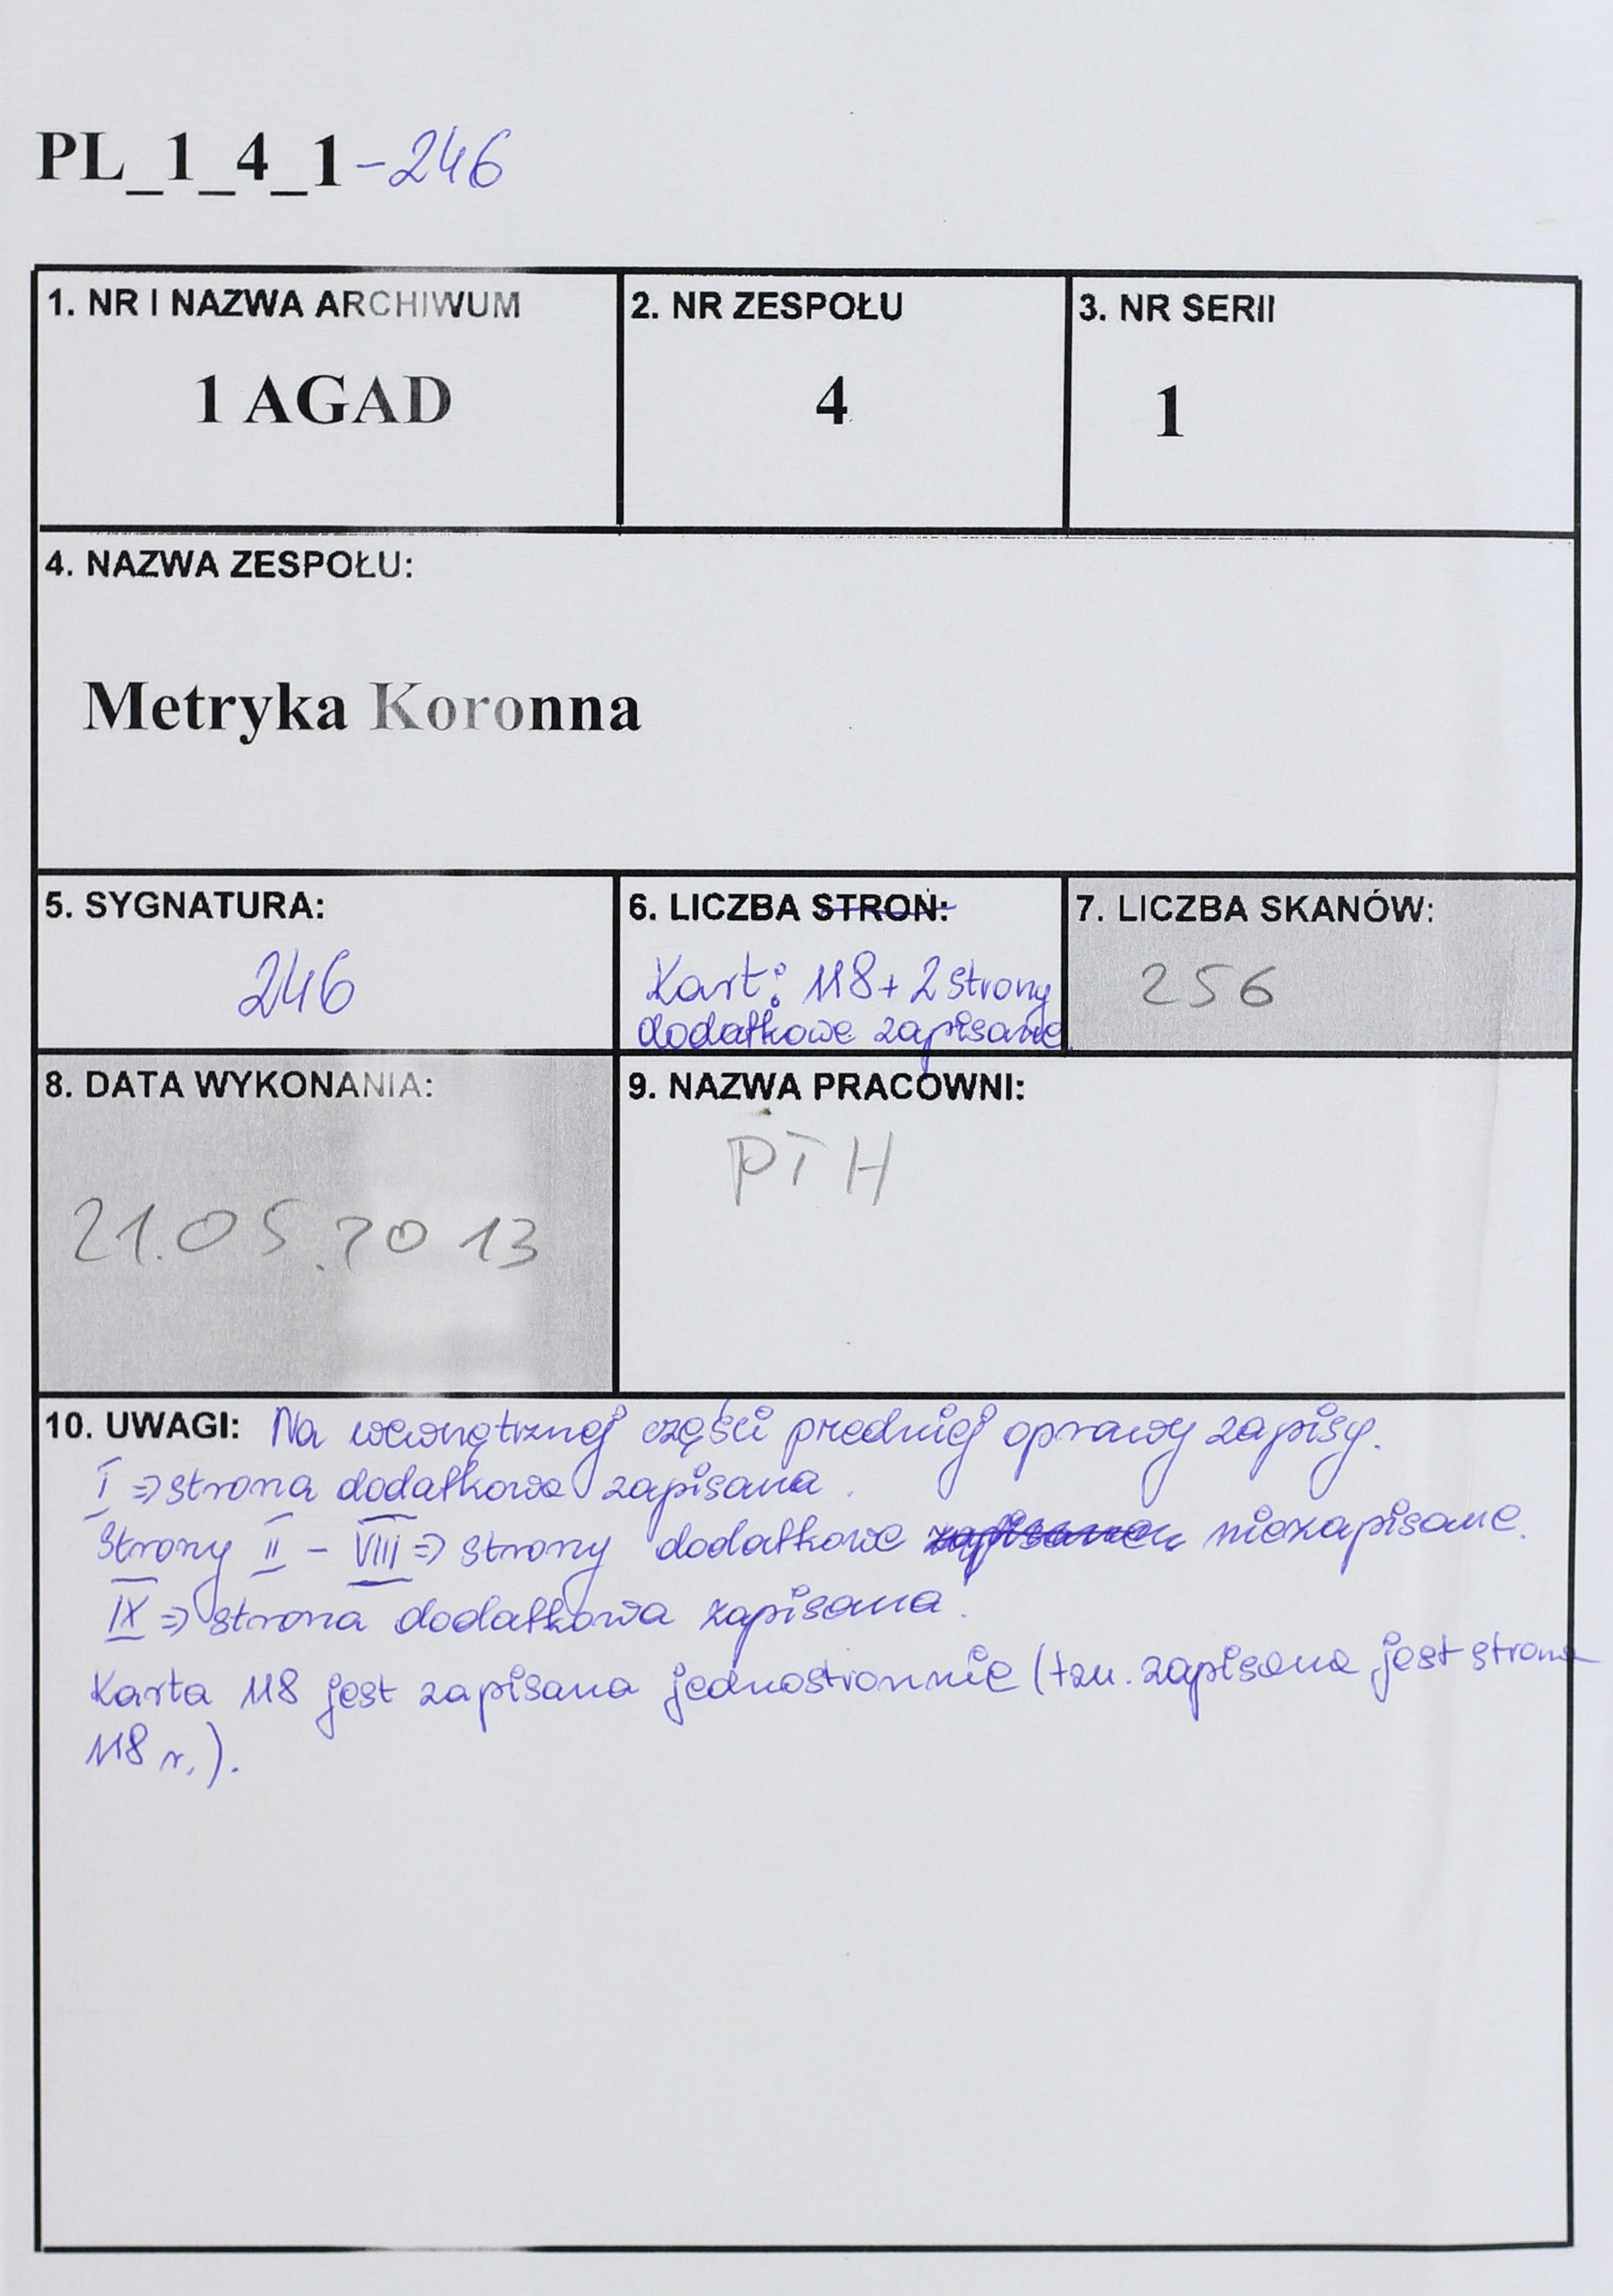 PL_1_4_1-246
1. NR I NAZWA ARCHIWUM
1 AGAD
2. NR ZESPOŁU
4
3. NR SERII
1
4. NAZWA ZESPOŁU:
Metryka Koronna
5. SYGNATURA:
246
6. LICZBA STRON:
Kart: 118 + 2 strony
dodatkowe zapisane
7. LICZBA SKANÓW:
256
8. DATA WYKONANIA:
21.05.2013
9. NAZWA PRACOWNI:
PTH
10. UWAGI: Na wewnętrznej części przedniej oprawy zapisy.
I => strona dodatkowa zapisana.
Strony II - VIII => strony dodatkowe niezapisane.
IX => strona dodatkowa zapisana.
Karta 118 jest zapisana jednostronnie (tzn. zapisana jest strona
118 r.).